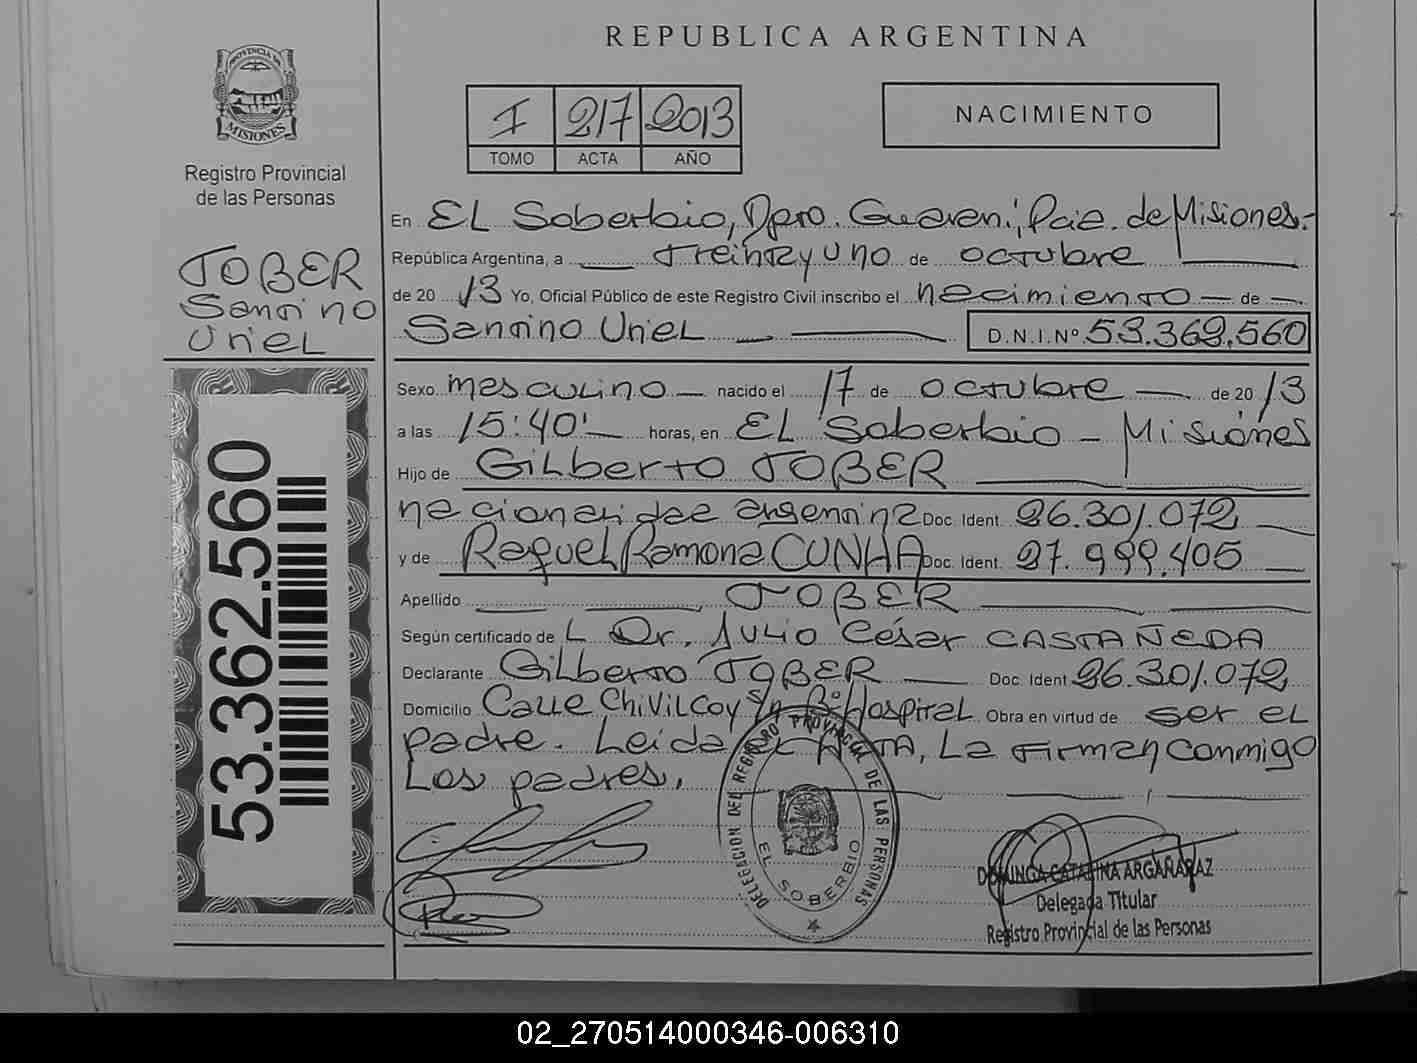 REPUBLICA ARGENTINA
PROVINCIA DE
MISIONES
Registro Provincial
de las Personas
TOBER
Santino
Uriel
53.362.560
I 217 2013
TOMO ACTA AÑO
NACIMIENTO
En EL Soberbio, Dpto. Guaraní, Pcia. de Misiones.-
República Argentina, a Treinta y uno de octubre
de 20 13 Yo, Oficial Público de este Registro Civil inscribo el nacimiento de
Santino Uriel D.N.I.Nº 53.362.560
Sexo masculino nacido el 17 de octubre de 20 13
a las 15:40'- horas, en EL Soberbio - Misiones
Hijo de Gilberto TOBER
nacionalidad argentina Doc. Ident. 26.301.072
y de Raquel Ramona CUNHA Doc. Ident. 27.999.405
Apellido TOBER
Según certificado de L Dr. Julio César CASTAÑEDA
Declarante Gilberto TOBER Doc. Ident 26.301.072
Domicilio Calle Chivilcoy s/n Bº Hospital Obra en virtud de ser el
padre. Leida el ACTA, La Firman conmigo
Los padres.
DELEGACION DEL REGISTRO PROVINCIAL DE LAS PERSONAS
EL SOBERBIO
DOMINGA CATALINA ARGAÑARAZ
Delegada Titular
Registro Provincial de las Personas
02_270514000346-006310